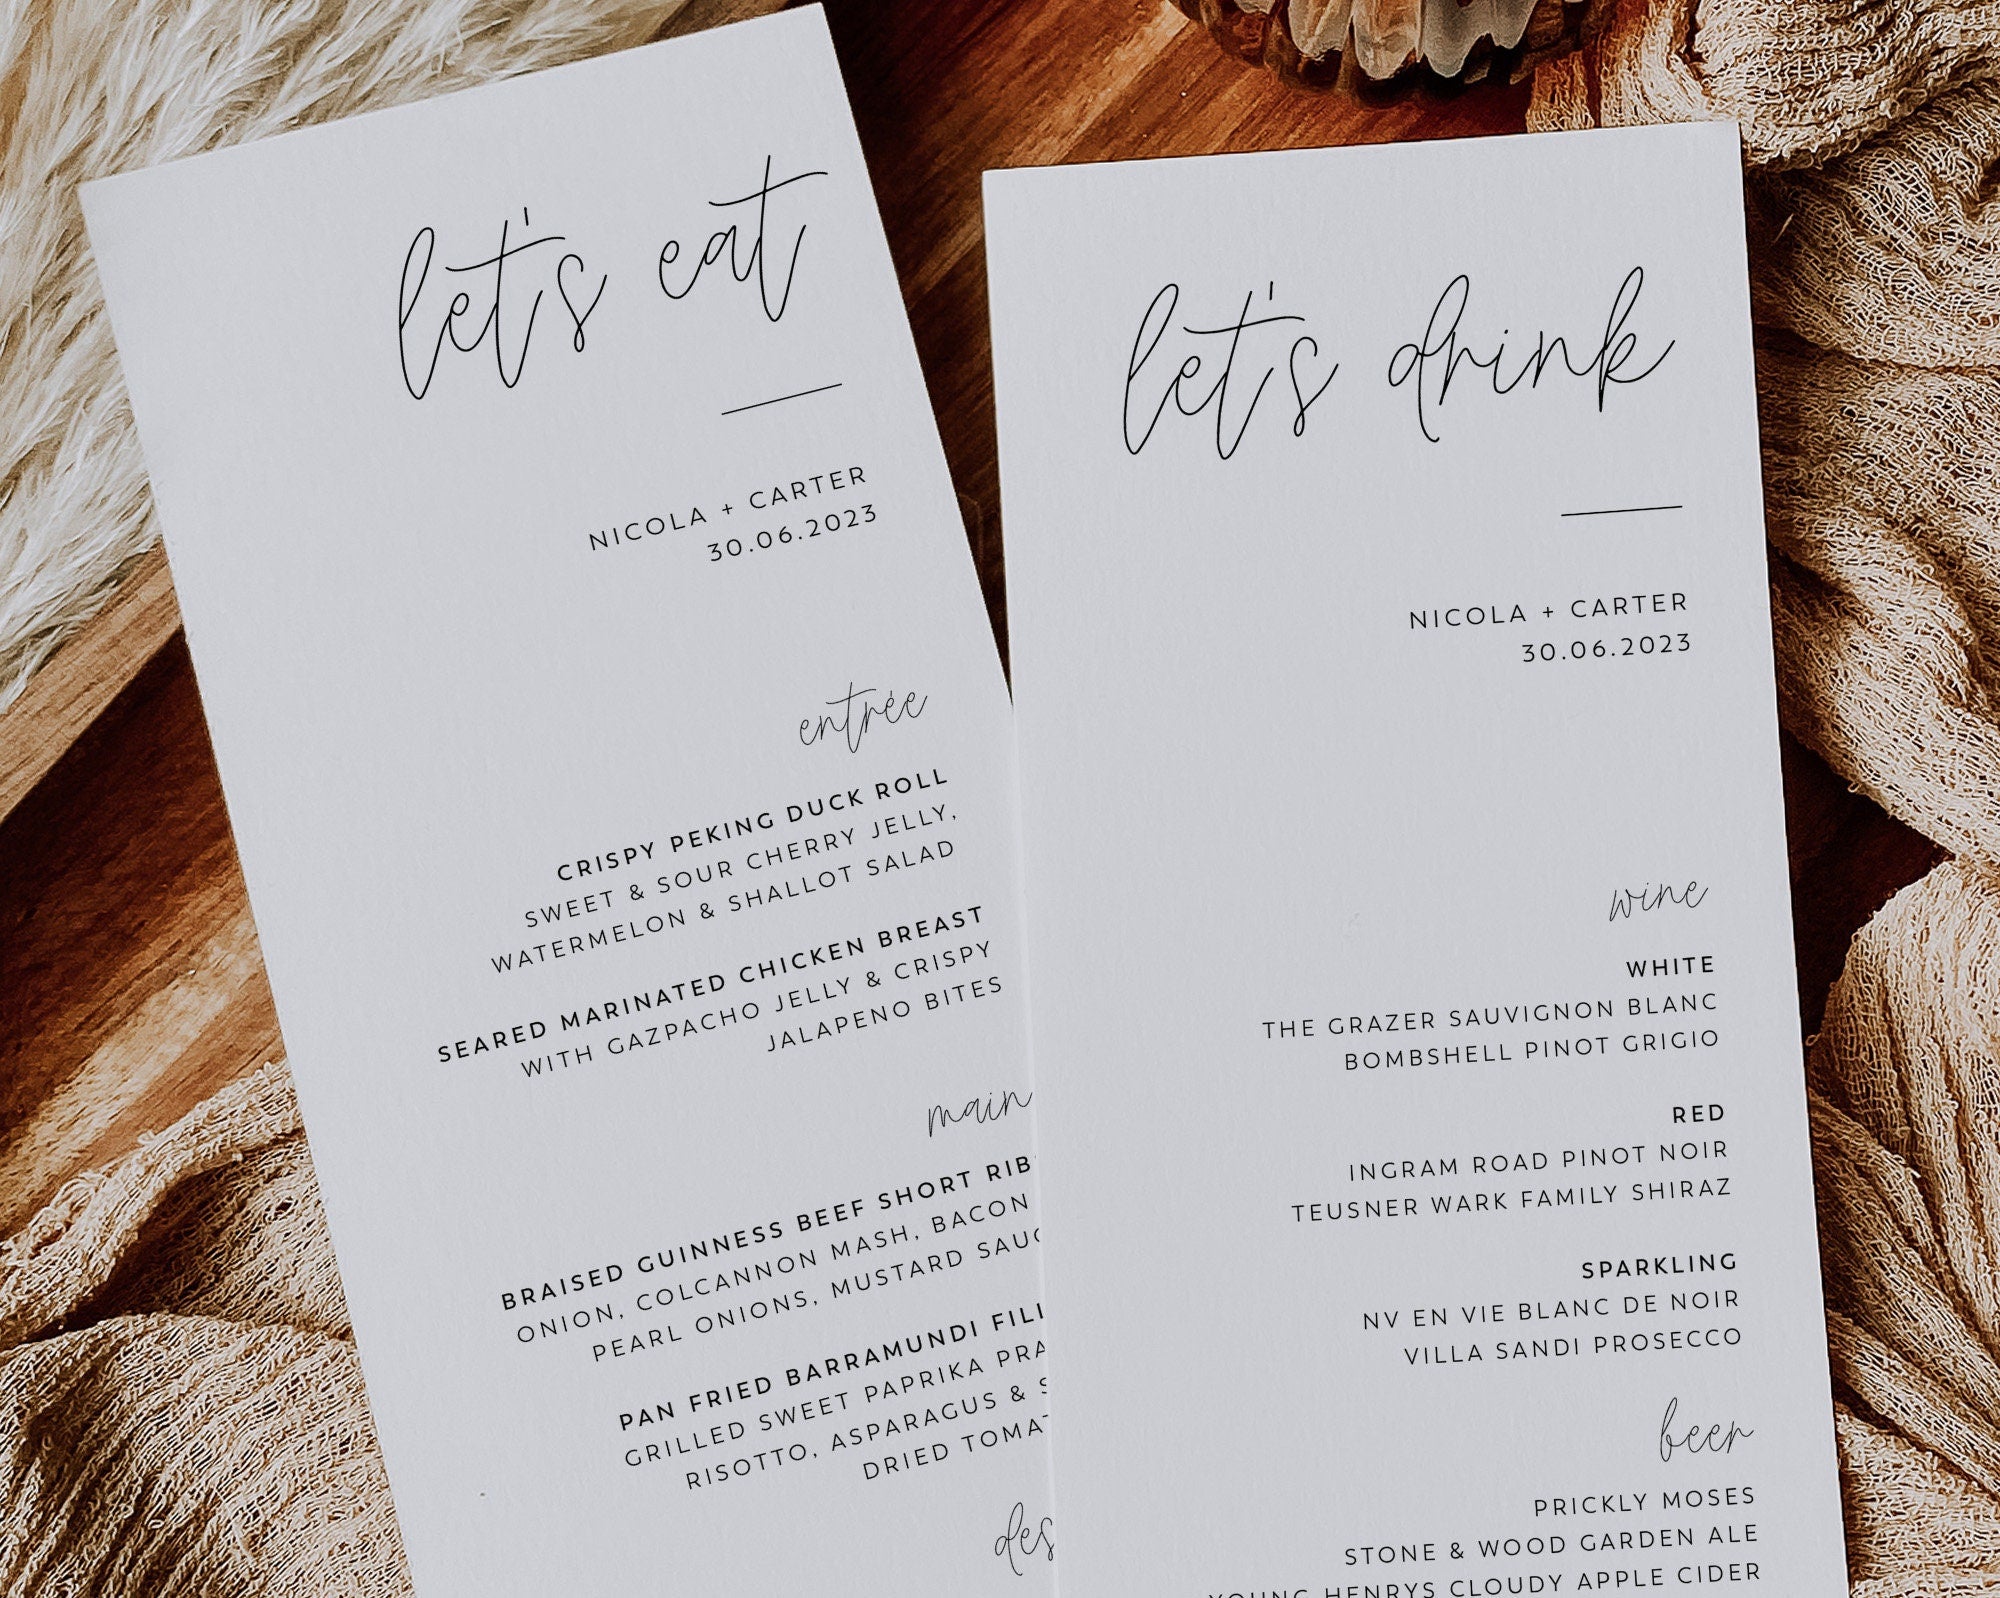 let's eat
NICOLA + CARTER
30.06.2023
entrée
CRISPY PEKING DUCK ROLL
SWEET & SOUR CHERRY JELLY,
WATERMELON & SHALLOT SALAD
SEARED MARINATED CHICKEN BREAST
WITH GAZPACHO JELLY & CRISPY
JALAPENO BITES
main
BRAISED GUINNESS BEEF SHORT
ONION, COLCANNON MASH, BACON
PEARL ONIONS, MUSTARD
PAN FRIED BARRAMUNDI
GRILLED SWEET PAPRIKA
RISOTTO, ASPARAGUS &
DRIED
let's drink
NICOLA + CARTER
30.06.2023
wine
WHITE
THE GRAZER SAUVIGNON BLANC
BOMBSHELL PINOT GRIGIO
RED
INGRAM ROAD PINOT NOIR
TEUSNER WARK FAMILY SHIRAZ
SPARKLING
NV EN VIE BLANC DE NOIR
VILLA SANDI PROSECCO
beer
PRICKLY MOSES
STONE & WOOD GARDEN ALE
YOUNG HENRYS CLOUDY APPLE CIDER